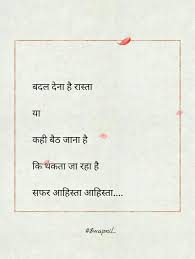 बदल देना है रास्ता
या
कही बैठ जाना है
कि थकता जा रहा है
सफर आहिस्ता आहिस्ता....
#Swapnil_